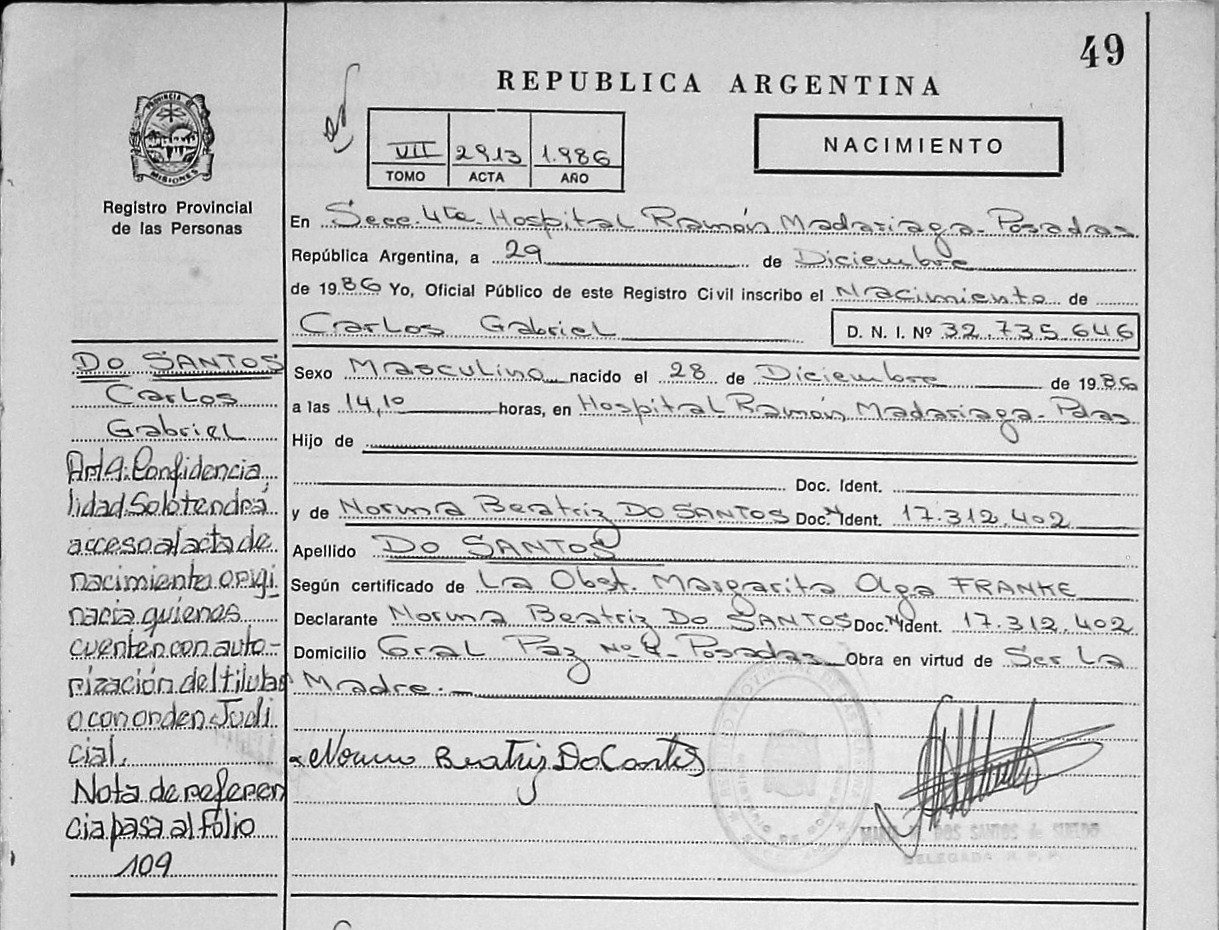 49
REPUBLICA ARGENTINA
NACIMIENTO
VII 2913 1.986
TOMO ACTA AÑO
PROVINCIA DE
MISIONES
Registro Provincial
de las Personas
En Secc. 4ta. Hospital Ramón Madariaga - Posadas
República Argentina, a 29 de Diciembre
de 1986 Yo, Oficial Público de este Registro Civil inscribo el Nacimiento de
Carlos Gabriel D. N. I. Nº 32.735.646
Sexo Masculino nacido el 28 de Diciembre de 1986
a las 14,10 horas, en Hospital Ramón Madariaga - Pdas
Hijo de
Doc. Ident.
y de Norma Beatriz DO SANTOS Doc. Ident. 17.312.402
Apellido DO SANTOS
Según certificado de La Obst. Margarita Olga FRANKE
Declarante Norma Beatriz DO SANTOS Doc. Ident. 17.312.402
Domicilio Gral Paz Nº 4 - Posadas Obra en virtud de Ser La
Madre. —
Norma Beatriz Do Santos
DOS SANTOS de SUELDO
DELEGADA R. P. P.
DO SANTOS
Carlos
Gabriel
Art 9: Confidencia
lidad. Solo tendrá
acceso al acta de
nacimiento origi
naria quienes
cuenten con auto-
rización del titular
o con orden Judi
cial.
Nota de referen
cia pasa al folio
109